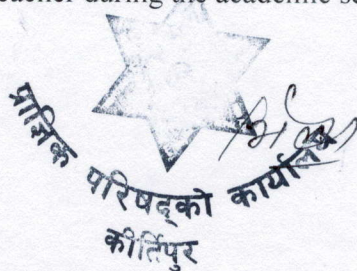 eacher during the academic se
प्राज्ञिक परिषद्को कार्यालय
कीर्तिपुर